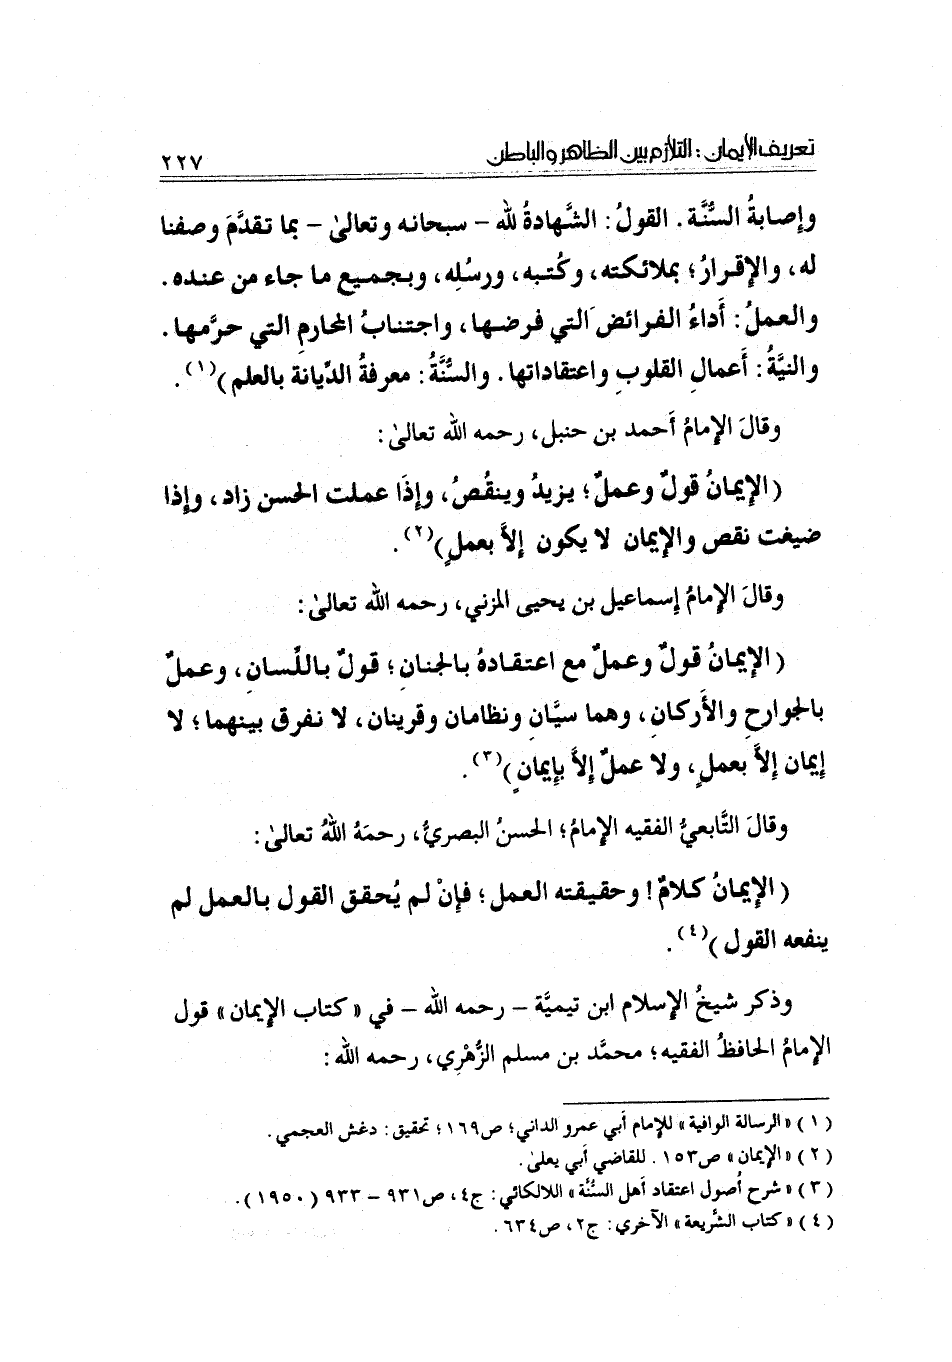 تعريف الإيمان : التلازم بين الظاهر والباطن ٢٢٧
وإصابةُ السُّنَّة. القولُ: الشَّهادةُ لله - سبحانه وتعالىٰ - بما تقدَّمَ وصفنا
له، والإقرارُ؛ بملائكته، وكُتبه، ورسُلِه، وبجميع ما جاء من عنده.
والعملُ: أَداءُ الفرائضَ التي فرضها، واجتنابُ المحارمِ التي حرَّمها.
والنيَّةُ: أَعمالِ القلوبِ واعتقاداتها. والسُّنَّةُ: معرفةُ الدِّيانة بالعلم )(١).
وقالَ الإمامُ أَحمد بن حنبل، رحمه الله تعالىٰ:
( الإيمانُ قولٌ وعملٌ؛ يزيدُ وينقُصُ، وإذَا عملت الحسن زاد، وإذا
ضيغت نقص والإيمان لا يكون إلاَّ بعملٍ )(٢).
وقالَ الإمامُ إسماعيل بن يحيى المزني، رحمه الله تعالىٰ:
( الإيمانُ قولٌ وعملٌ مع اعتقادهُ بالجنانِ؛ قولٌ باللِّسانِ، وعملٌ
بالجوارحِ والأَركانِ، وهما سيَّانِ ونظامان وقرينان، لا نفرق بينهما؛ لا
إيمان إلاَّ بعملٍ، ولا عملٌ إلاَّ بإيمانٍ )(٣).
وقالَ التَّابعيُّ الفقيه الإمامُ؛ الحسنُ البصريُّ، رحمَهُ اللهُ تعالىٰ:
( الإيمانُ كلامٌ! وحقيقته العمل؛ فإنْ لم يُحقق القول بالعمل لم
ينفعه القول )(٤).
وذكر شيخُ الإسلام ابن تيميَّة - رحمه الله - في « كتاب الإيمان » قول
الإمامُ الحافظُ الفقيه؛ محمَّد بن مسلم الزُّهْرِي، رحمه الله:
( ١ ) « الرسالة الوافية » للإمام أبي عمرو الداني؛ ص١٦٩؛ تحقيق: دغش العجمي.
( ٢ ) « الإيمان » ص١٥٣. للقاضي أبي يعلىٰ.
( ٣ ) « شرح أُصول اعتقاد أهل السُّنَّة » اللالكائي: ج٤، ص٩٣١ - ٩٣٣ ( ١٩٥٠ ).
( ٤ ) « كتاب الشَّريعة » الآخري: ج٢، ص٦٣٤.